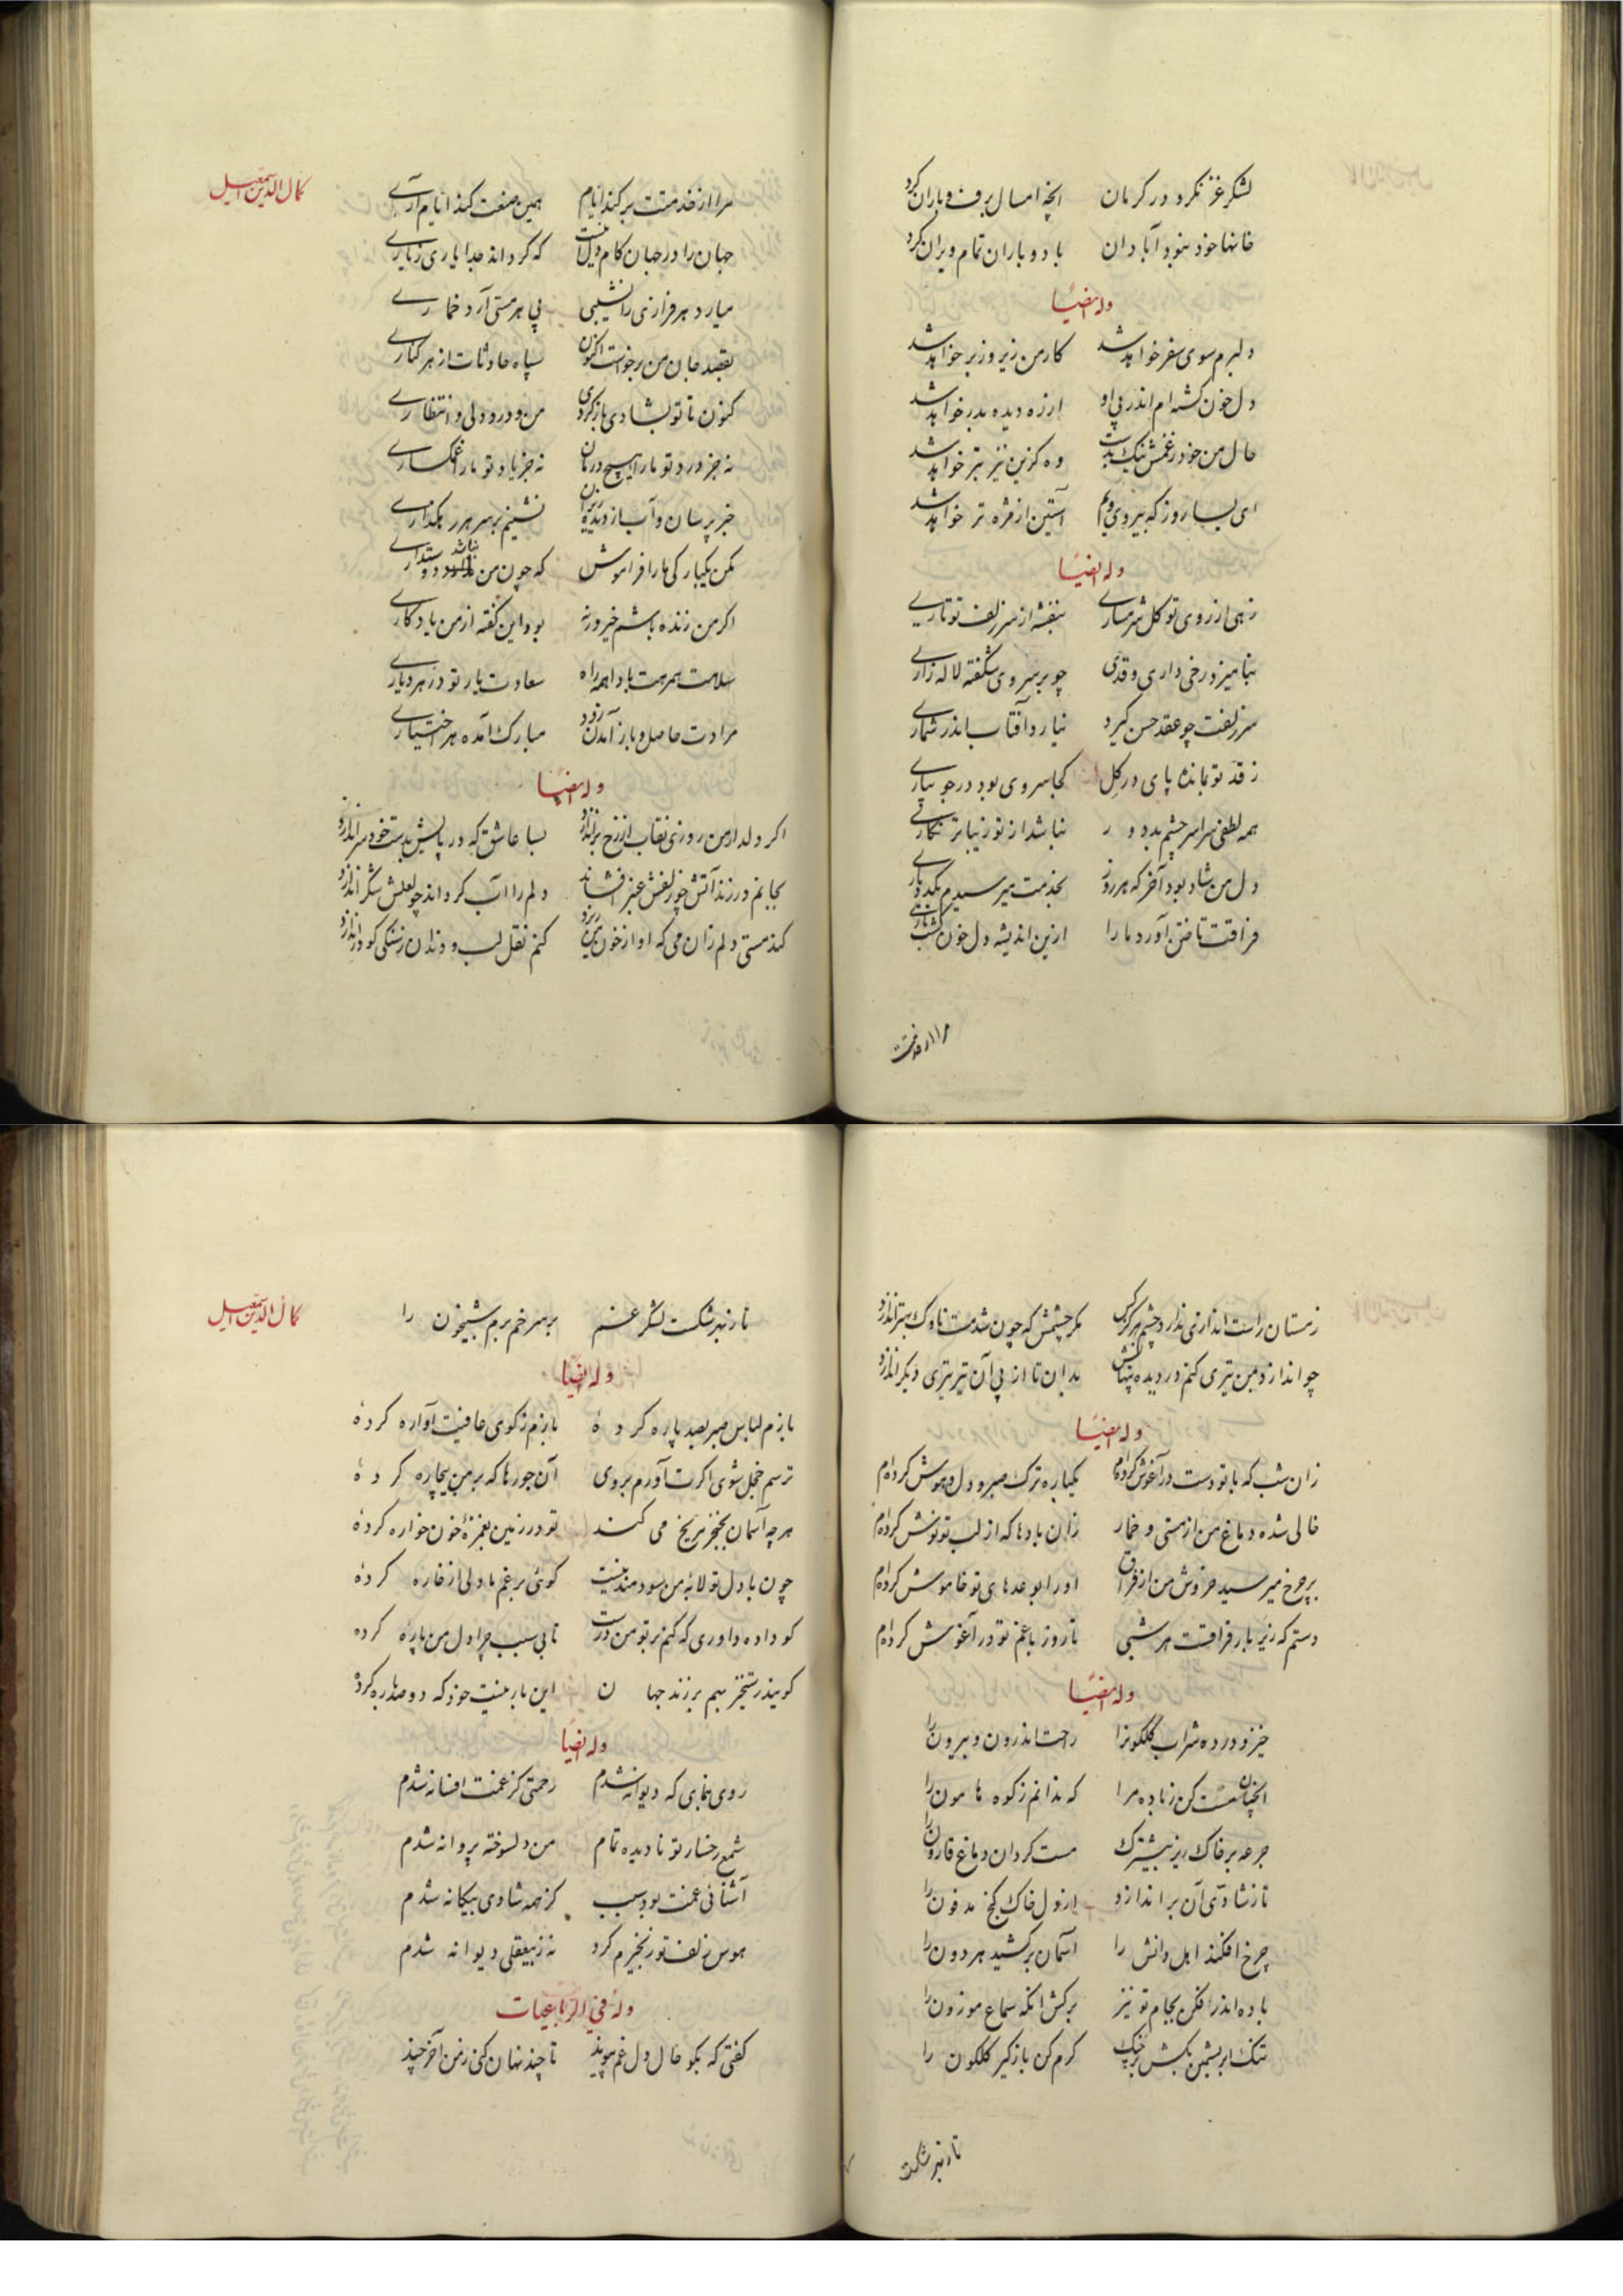 لشکر غز نکرد در کرمان آنچه امسال برف و باران کرد
خانها خود نبود آبادان باد و باران تمام ویران کرد
وله ایضاً
دلبرم سوی سفر خواهد شد کار من زیر و زبر خواهد شد
دل خون گشته‌ام اندر پی او از ره دیده بدر خواهد شد
حال من خود ز غمش نیک بدست وه کزین نیز بتر خواهد شد
ای بسا روز که بی روی ویم آستین از مژه تر خواهد شد
وله ایضاً
زهی از روی تو گل شرمساری بنفشه از سر زلف تو تاری
بنامیزد رخی داری و قدی چو بر سروی شکفته لاله زاری
سر زلفت چو عقد حسن گیرد نیارد آفتاب اندر شماری
ز قد تو بمانده پای در گل کجا سروی بود در جویباری
همه لطفی سراسر چشم بد دور نباشد از تو زیباتر نگاری
دل من شاد بود آخر که هر روز بخدمت میرسیدم یکدو باری
فراقت تاختن آورد ما را ازین اندیشه دل خون گشت باری
مرا از خدمتت
کمال الدین اسمعیل
مرا از خدمتت برکند ایام همین صنعت کند ایام آری
جهان را در جهان کام دلی نیست که گرداند جدا یاری ز یاری
میارد هر فرازی را نشیبی پی هر مستی آرد خماری
بقصد جان من برخواست اکنون سپاه حادثات از هر کناری
کنون تا تو بشادی بازگردی من و درد دلی و انتظاری
نه جز درد تو ما را هیچ درمان نه جز یاد تو ما را غمگساری
خبر پرسان و آب از دیده ریزان نشینم بر سر هر رهگذاری
مکن یکبارگی ما را فراموش که چون من نباشد دوستداری
اگر من زنده باشم خیر ورنه بود این گفته از من یادگاری
سلامت همرهت بادا همه راه سعادت یار تو در هر دیاری
مرادت حاصل و باز آمدن زود مبارک آمده هر اختیاری
وله ایضاً
اگر دلدار من روزی نقاب از رخ براندازد بسا عاشق که در پایش بدست خود سر اندازد
بجانم در زند آتش چو زلفش عنبر افشاند دلم را آب گرداند چو لعلش شکر اندازد
کند مستی دلم زان می که او از خون من ریزد کنم نقل لب و دندان ز سنگی کو در اندازد
ز مستان راست اندازی ندارد چشم هرگز کس مگر چشمش که چون شد مست ناوک بهتر اندازد
چو اندازد بمن تیری کنم در دیده پنهانش بدان تا از پی آن تیر تیری دیگر اندازد
وله ایضاً
زان شب که با تو دست در آغوش کرده‌ام یکباره ترک صبر و دل و هوش کرده‌ام
خالی نشده دماغ من از مستی و خمار زان بادها که از لب تو نوش کرده‌ام
بر چرخ میرسید خروش من از فراق او را بوعدهای تو خاموش کرده‌ام
دستم که زیر بار فراقت هر شبی تا روز با غم تو در آغوش کرده‌ام
وله ایضاً
خیز و در ده شراب گلگونرا راحت اندرون و بیرون را
آنچنان مست کن ز باده مرا که ندانم ز کوه هامون را
جرعه بر خاک ریز بیشترک مست گردان دماغ قارون را
تا ز شادی آن براندازد از دل خاک گنج مدفون را
چرخ افکند اهل دانش را آسمان برکشید هر دون را
باده اندر افکن بجام تو نیز برکش آنگه سماع موزون را
تنگ ابریشمین بکش بر خنک کرم کن بازگیر گلگون را
تا زنیم شکست
کمال الدین اسمعیل
تا زنیم شکست لشکر غم بر سر خم بریم شبیخون را
وله ایضاً
بازم لباس صبر بصد پاره کردهٔ بازم ز کوی عافیت آواره کردهٔ
ترسم خجل شوی اگرت آورم بروی آن جورها که بر من بیچاره کردهٔ
هر چه آسمان بخنجر مریخ می کند تو در زمین بغمزهٔ خون خواره کردهٔ
چون با دل تو لابهٔ من سودمند نیست گوئی برغم ما دلی از خاره کردهٔ
کو داد ده داوری که کنم بر تو من درست تا بی سبب چرا دل من پاره کرده
گویند رستخیز بهم برزند جهان این بار نیست خود که دو صد باره کردهٔ
وله ایضاً
روی بنمای که دیوانه شدم رحمتی کز غمت افسانه شدم
شمع رخسار تو نادیده تمام من دلسوخته پروانه شدم
آشنائی غمت بود سبب کز همه شادی بیگانه شدم
هوس زلف تو زنجیرم کرد نه ز بیعقلی دیوانه شدم
وله فی الرباعیات
گفتی که بگو حال دل غم پیوند تا چند نهان کنی ز من آخر چند